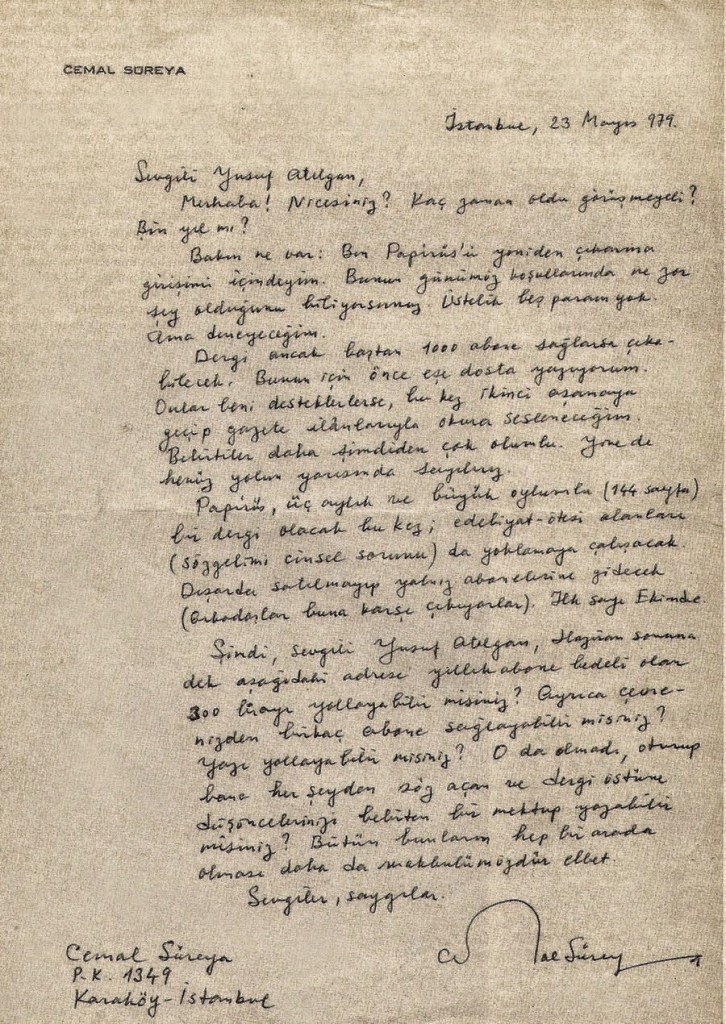 CEMAL SÜREYA
İstanbul, 23 Mayıs 979.
Sevgili Yusuf Atılgan,
Merhaba! Nicesiniz? Kaç zaman oldu görüşmeyeli?
Bin yıl mı?
Bakın ne var: Ben Papirüs'ü yeniden çıkarma
girişimi içindeyim. Bunun günümüz koşullarında ne zor
şey olduğunu biliyorsunuz. Üstelik beş param yok.
Ama deneyeceğim.
Dergi ancak baştan 1000 abone sağlarsa çıka-
bilecek. Bunun için önce eşe dosta yazıyorum.
Onlar beni desteklerlerse, bu kez ikinci aşamaya
geçip gazete ilânlarıyla okura sesleneceğim.
Belirtiler daha şimdiden çok olumlu. Yine de
henüz yolun yarısında sayılırız.
Papirüs, üç aylık ve büyük oylumlu (144 sayfa)
bir dergi olacak bu kez; edebiyat-ötesi alanları
(sözgelimi cinsel sorunu) da yoklamaya çalışacak.
Dışarda satılmayıp yalnız abonelerine gidecek
(Arkadaşlar buna karşı çıkıyorlar). İlk sayı Ekimde.
Şimdi, sevgili Yusuf Atılgan, Haziran sonuna
dek aşağıdaki adrese yıllık abone bedeli olan
300 lirayı yollayabilir misiniz? Ayrıca çevre-
nizden birkaç abone sağlayabilir misiniz?
Yazı yollayabilir misiniz? O da olmadı, oturup
bana her şeyden söz açan ve dergi üstüne
düşüncelerinizi belirten bir mektup yazabilir
misiniz? Bütün bunların hep bir arada
olması daha da makbulümüzdür elbet.
Sevgiler, saygılar.
Cemal Süreya
Cemal Süreya
P.K. 1349
Karaköy-İstanbul